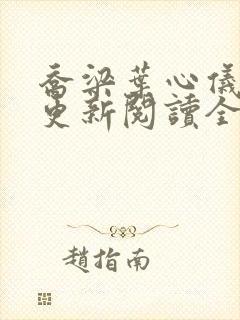 喬梁葉心儀
更新閱讀全
趙指南